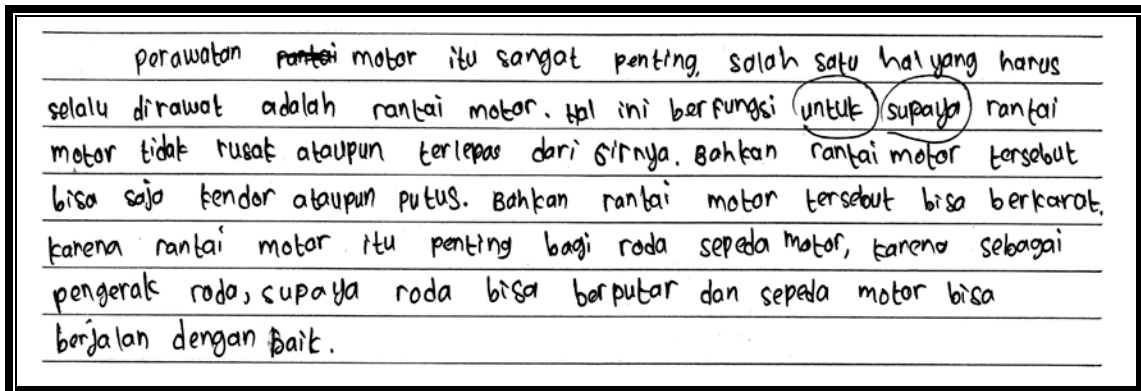 Perawatan rantai motor itu sangat penting, salah satu hal yang harus
selalu dirawat adalah rantai motor. Hal ini berfungsi untuk supaya rantai
motor tidak rusak ataupun terlepas dari girnya. Bahkan rantai motor tersebut
bisa saja kendor ataupun putus. Bahkan rantai motor tersebut bisa berkarat.
karena rantai motor itu penting bagi roda sepeda motor, karena sebagai
pengerak roda, supaya roda bisa berputar dan sepeda motor bisa
berjalan dengan Baik.